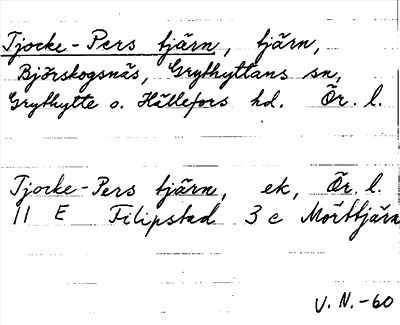 Tjocke-Pers tjärn, tjärn,
Björskogsnäs, Grythyttans sn,
Grythytte o. Hällefors hd. Ör. l.
Tjocke-Pers tjärn, ek, Ör. l.
11 E Filipstad 3 c Mörttjärn
V. N. -60